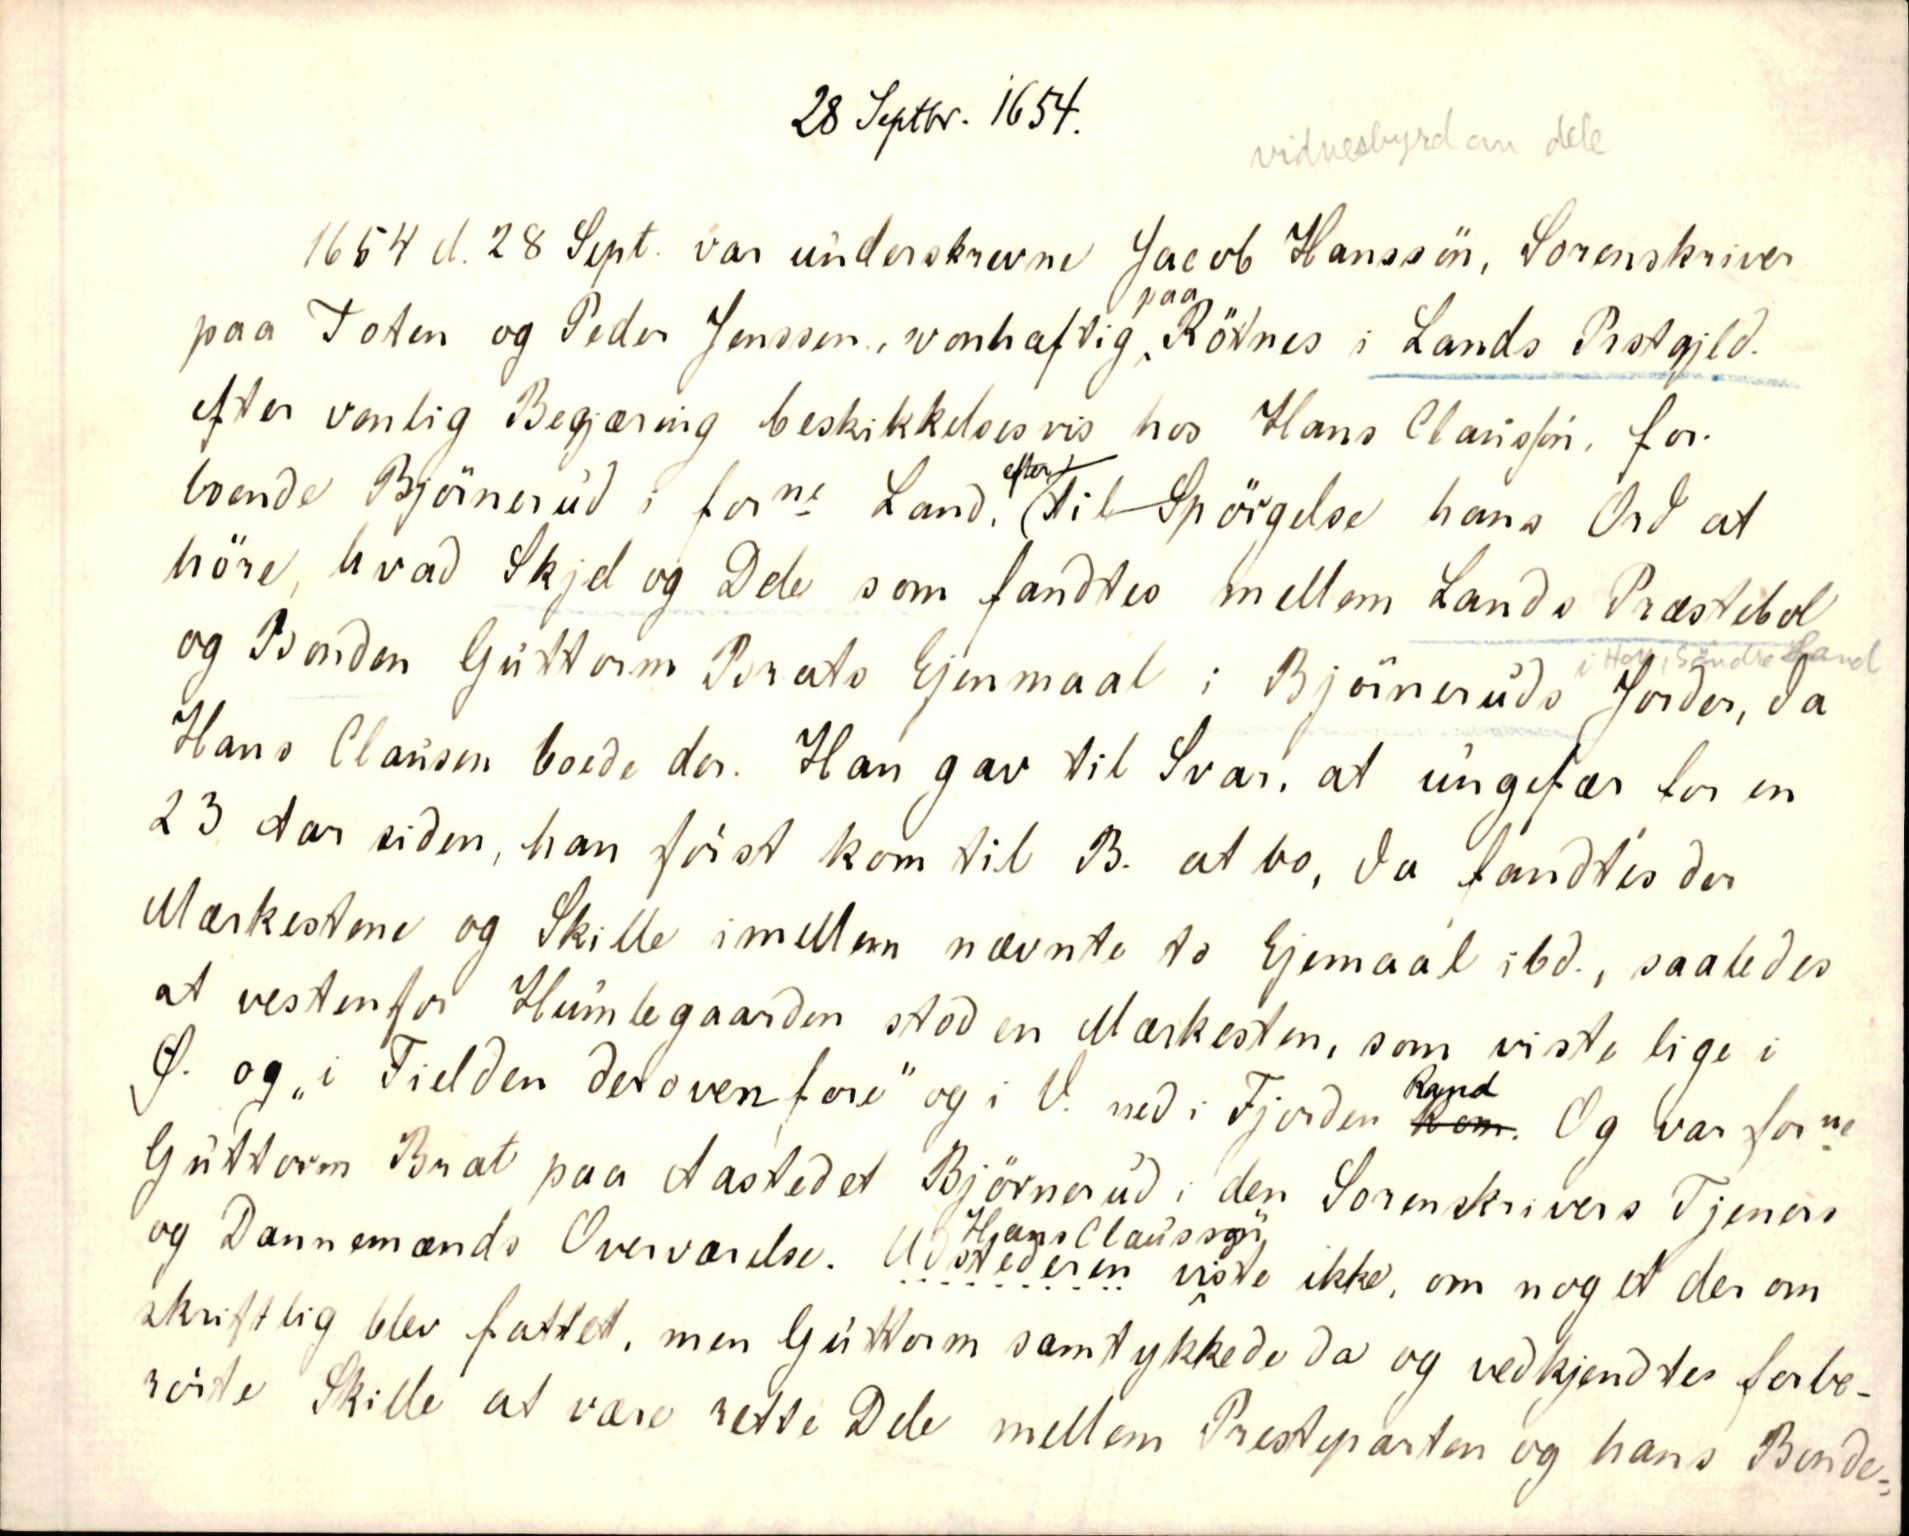 28 Septbr. 1654.
vidnesbyrd om dele
1654 d. 28 Sept. var underskrevne Jacob Hanssön, Sorenskriver
paa Toten og Peder Jenssen, vonhaftig paa Rötnes i Lands Prstgjld.
efter venlig Begjæring beskikkelsesvis hos Hans Claussön, for.
boende Björnerud i forne Land, efter (til Spörgelse hans Ord at
höre, hvad Skjel og Dele som fandtes mellem Lands Præstebol
i Hov, Söndre Land
og Bonden Guttorm Brats Ejenmaal i Björneruds Jorder, da
Hans Clausen boede der. Han gav til Svar, at ungefær for en
23 Aar siden, han först kom til B. at bo, da fandtes der
Mærkestene og Skille imellem nævnte to Ejemaal ibd., saaledes
at vestenfor Humlegaarden stod en Mærkesten, som viste lige i
Ø. og „i Fielden derovenfore" og i V. ned i Fjorden Rand Kom. Og var forne
Guttorm Brat paa Aastedet Björnerud i den Sorenskrivers Tjeners
og Dannemænds Overværelse. Udstederen Hans Claussøn viste ikke, om noget der om
skriftlig blev fattet, men Guttorm samtykkede da og vedkjendtes forbe-
rörte Skille at være rette Dele mellem Presteparten og hans Bonde-